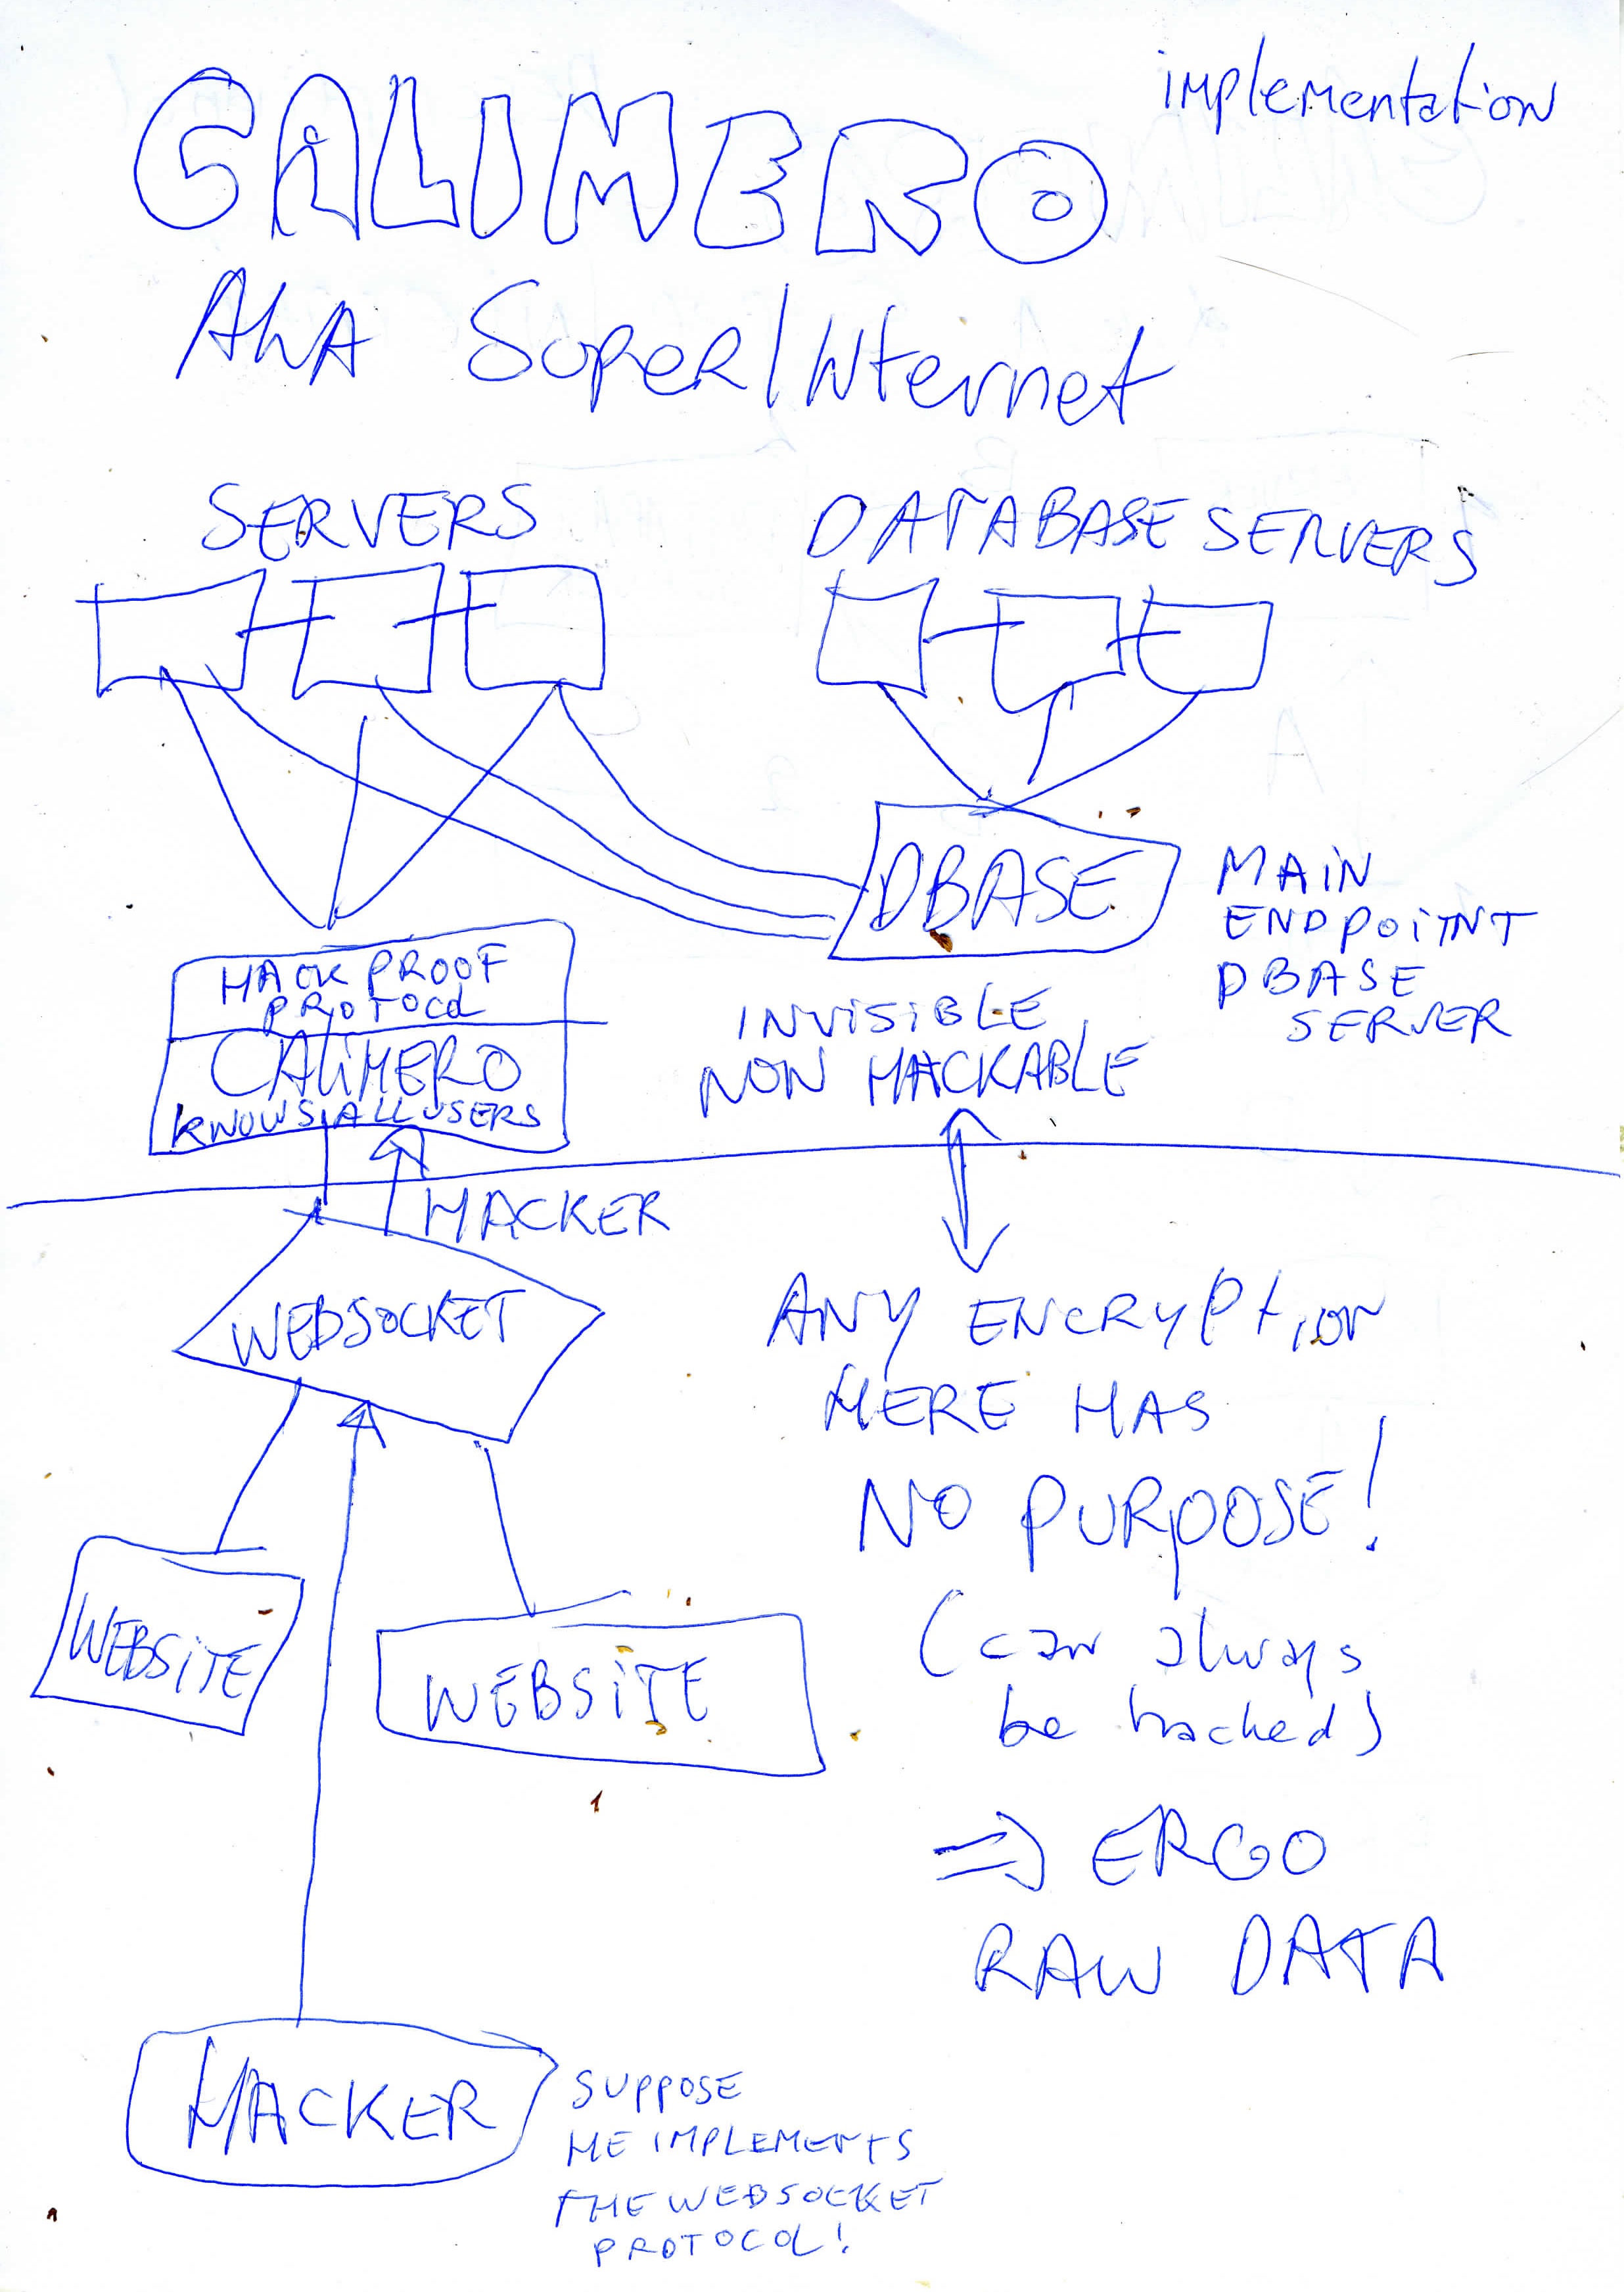 implementation
CALIMERO
AKA SUPER/INternet
SERVERS
DATABASE SERVERS
DBASE
MAIN
ENDPOiTNT
DBASE
SERVER
HACK PROOF
PROTOCOL
CALiMERO
KNOWS ALL USERS
INViSiBLE
NON HACKABLE
HACKER
WEBSOCKET
ANY ENCRYPtion
HERE HAS
NO PURPOSE!
(can always
be hacked)
⇒ ERGO
RAW DATA
WEBSiTE
WEBSiTE
HACKER
SUPPOSE
HE IMPLEMENTS
THE WEBSOCKET
PROTOCOL!